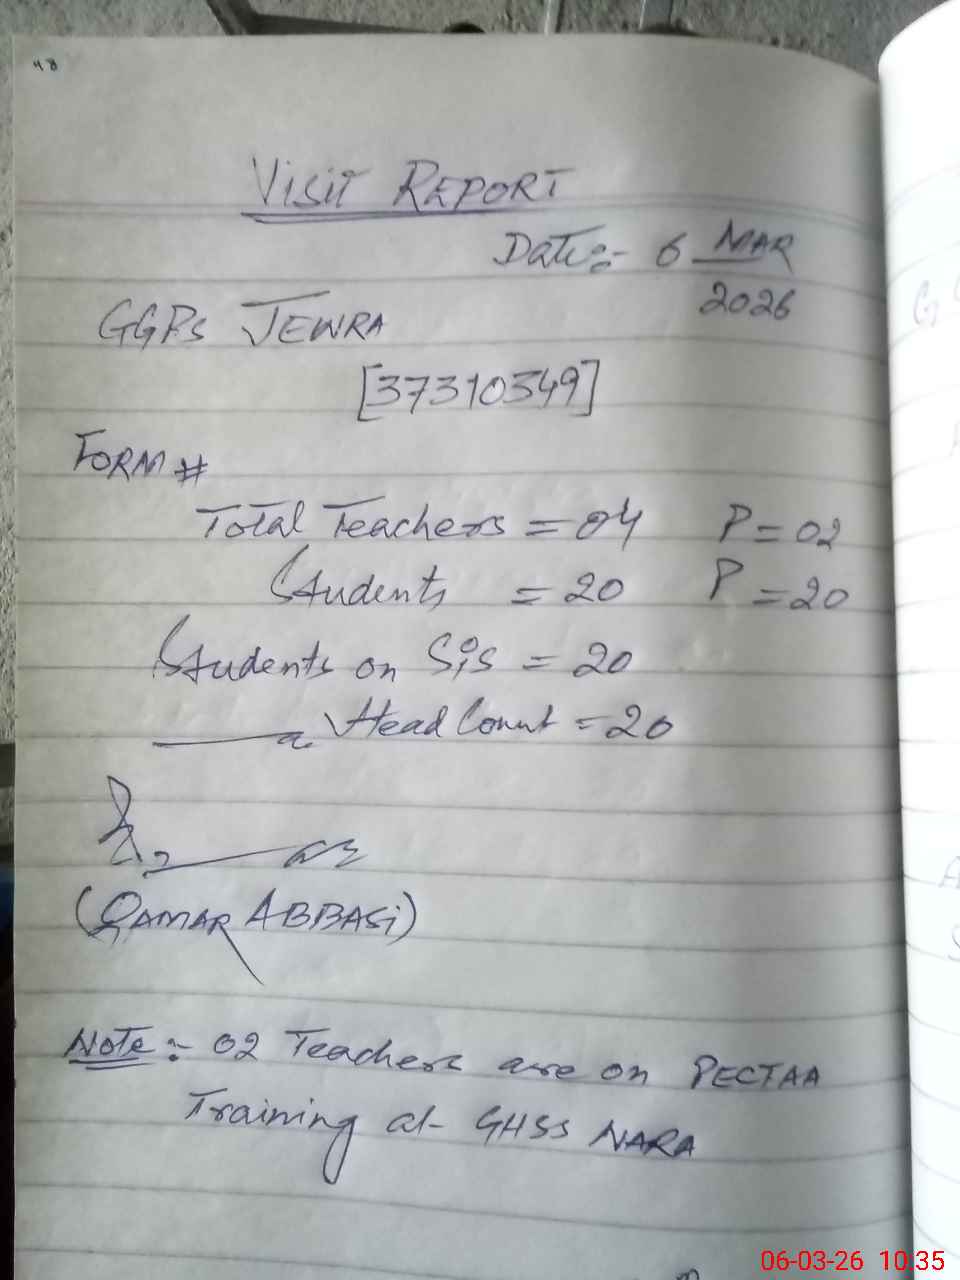 48
VISIT REPORT
Date:- 6 MAR
2026
GGPS JEWRA
[37310349]
FORM #
Total Teachers = 04 P = 02
Students = 20 P = 20
Students on SiS = 20
Head Count = 20
(QAMAR ABBASi)
NOTE:- 02 Teachers are on PECTAA
Training at GHSS NARA
06-03-26 10:35